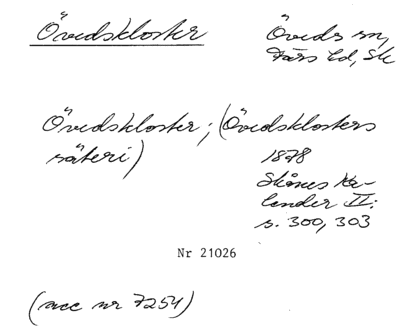 Övedskloster
Öveds sn,
Färs hd, Sk
Övedskloster; (Övedsklosters
säteri)
1878
Skånes Ka-
lender II:
s. 300, 303
Nr 21026
(acc nr 7254)